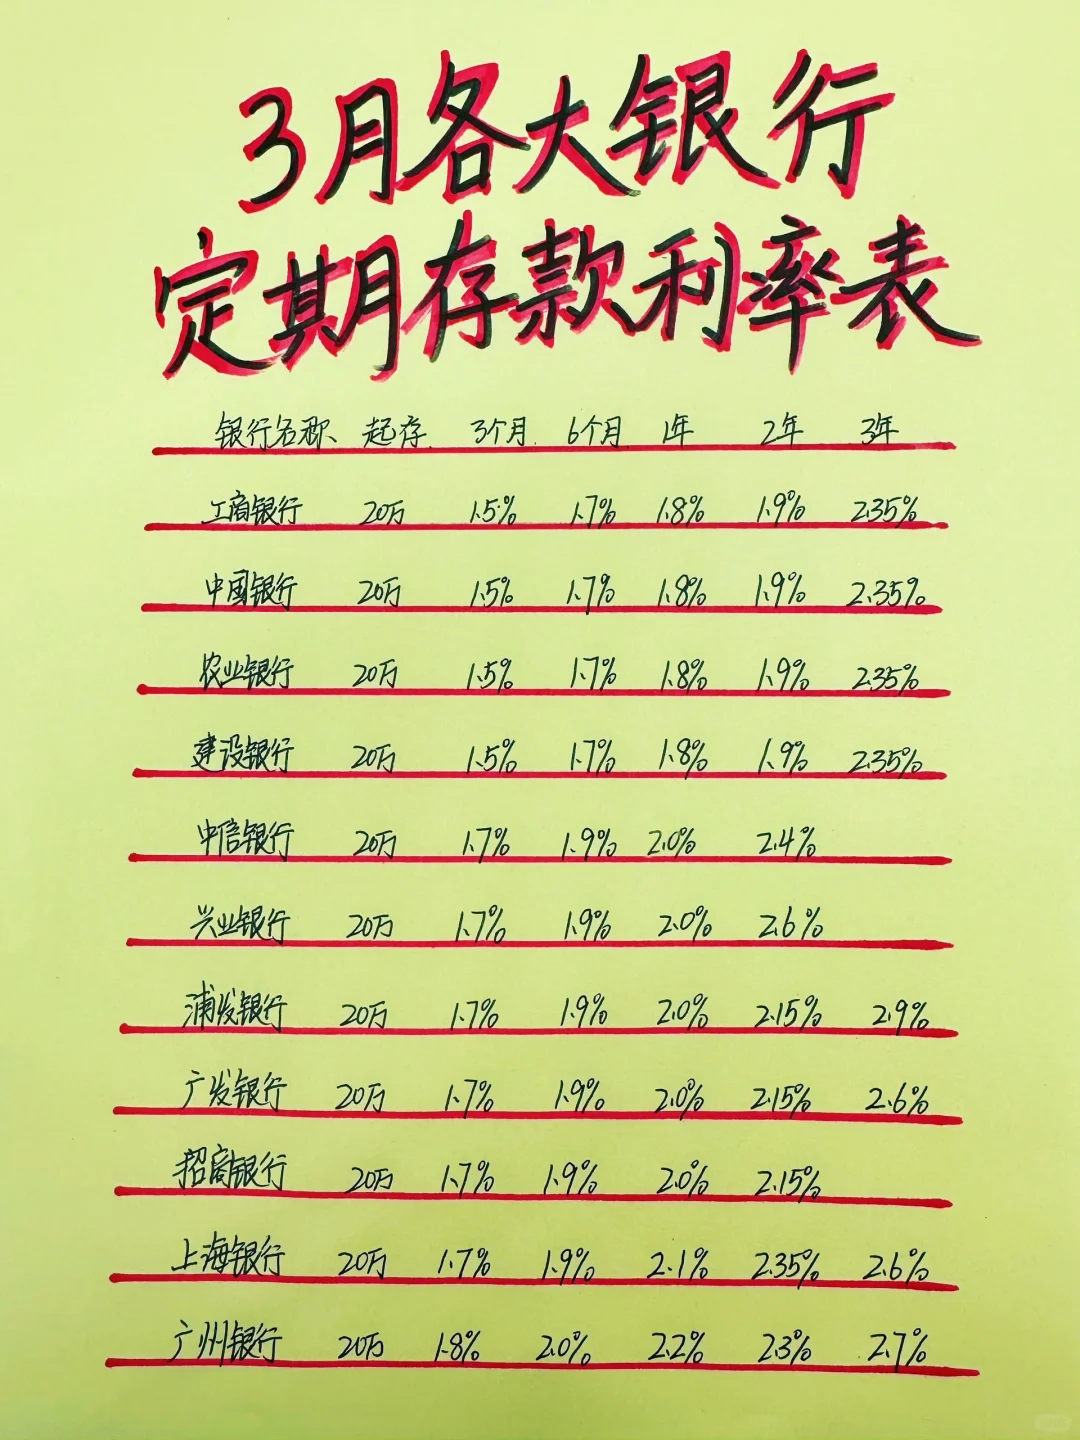 3月各大银行
定期存款利率表
银行名称、 起存 3个月 6个月 1年 2年 3年
工商银行 20万 1.5% 1.7% 1.8% 1.9% 2.35%
中国银行 20万 1.5% 1.7% 1.8% 1.9% 2.35%
农业银行 20万 1.5% 1.7% 1.8% 1.9% 2.35%
建设银行 20万 1.5% 1.7% 1.8% 1.9% 2.35%
中信银行 20万 1.7% 1.9% 2.0% 2.4%
兴业银行 20万 1.7% 1.9% 2.0% 2.6%
浦发银行 20万 1.7% 1.9% 2.0% 2.15% 2.9%
广发银行 20万 1.7% 1.9% 2.0% 2.15% 2.6%
招商银行 20万 1.7% 1.9% 2.0% 2.15%
上海银行 20万 1.7% 1.9% 2.1% 2.35% 2.6%
广州银行 20万 1.8% 2.0% 2.2% 2.3% 2.7%